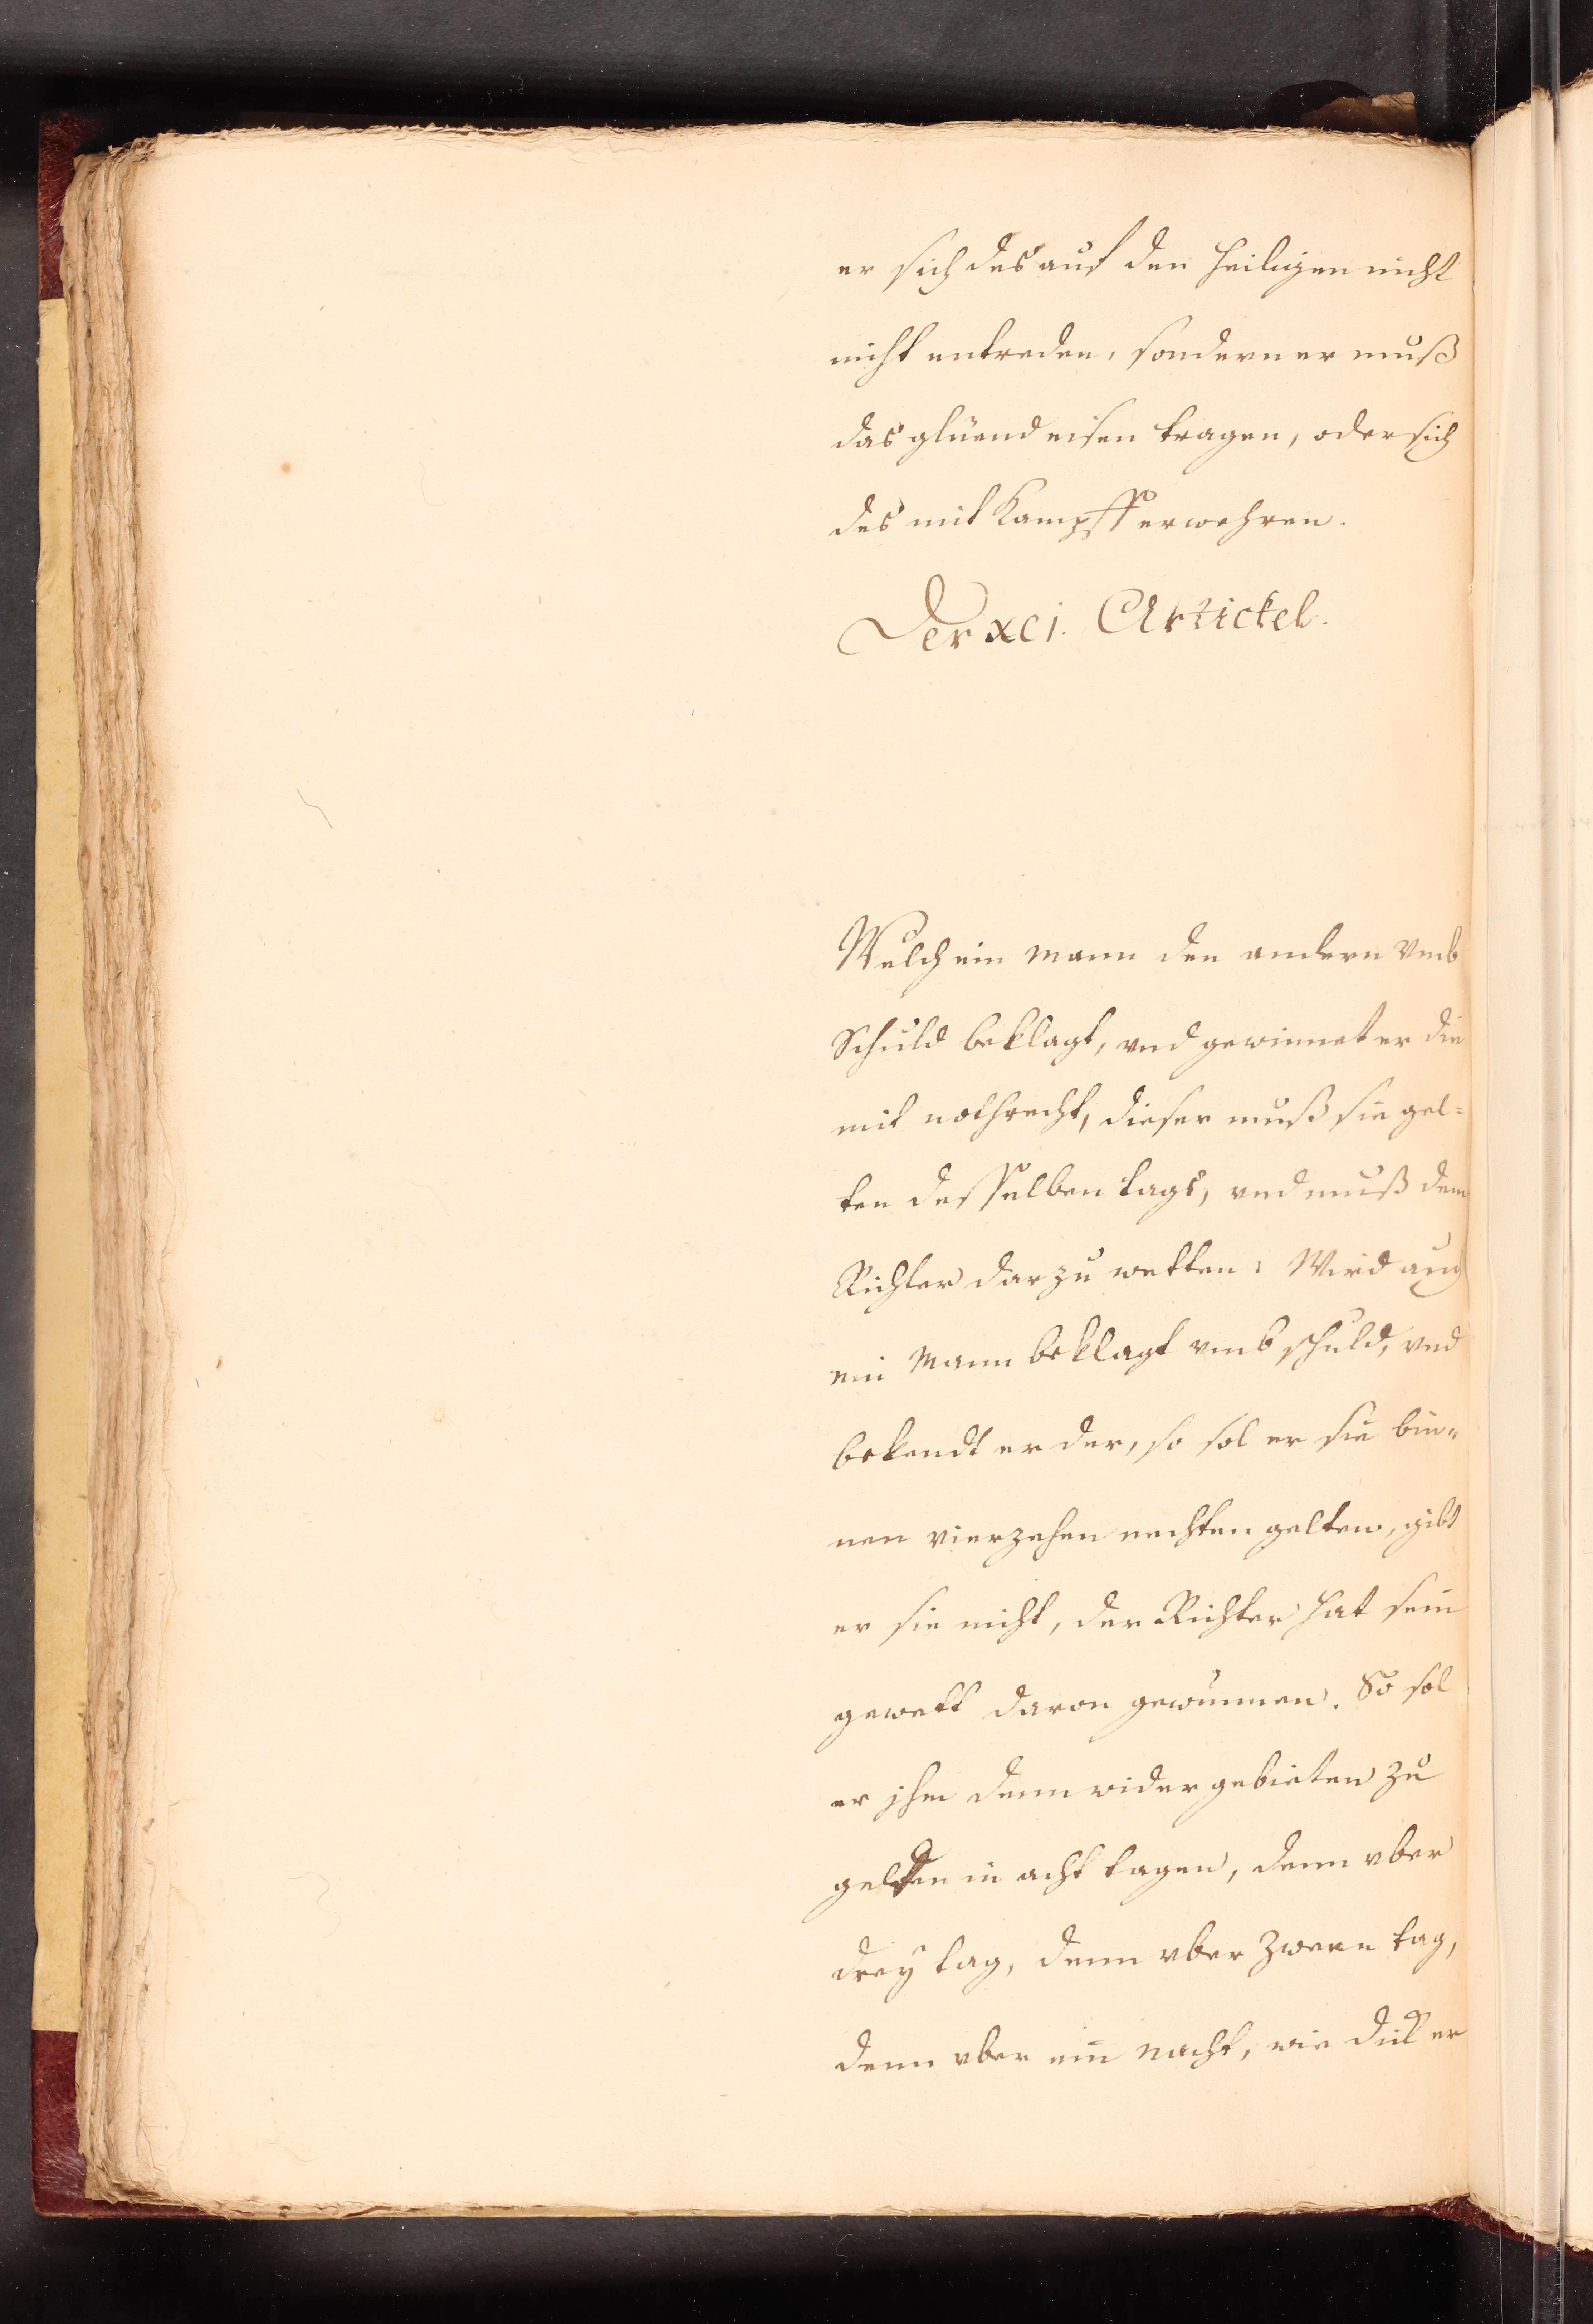 er sich des auf den heiligen nicht
nicht entreden, sondern er muß
das glüend eisen tragen, oder sich
des mit Kampff erwehren.
Der xci. Artickel.
Welch ein mann den andern vmb
Schuld beklagt, vnd gewinnet er die
mit nothrecht, dieser muß sie gel=
ten desselben tags, vnd muß dem
Richter darzu wetten: Wird auch
ein Mann beklagt vmb schuld, vnd
bekendt er der, so sol er sie bin=
nen vierzehen nechten gelten, gibt
er sie nicht, der Richter hat sein
gewett daran gewunnen. So sol
er jhm denn wider gebieten zu
gelten in acht tagen, denn vber
drey tag, denn vber zween tag,
denn vber ein nacht, wie dick er